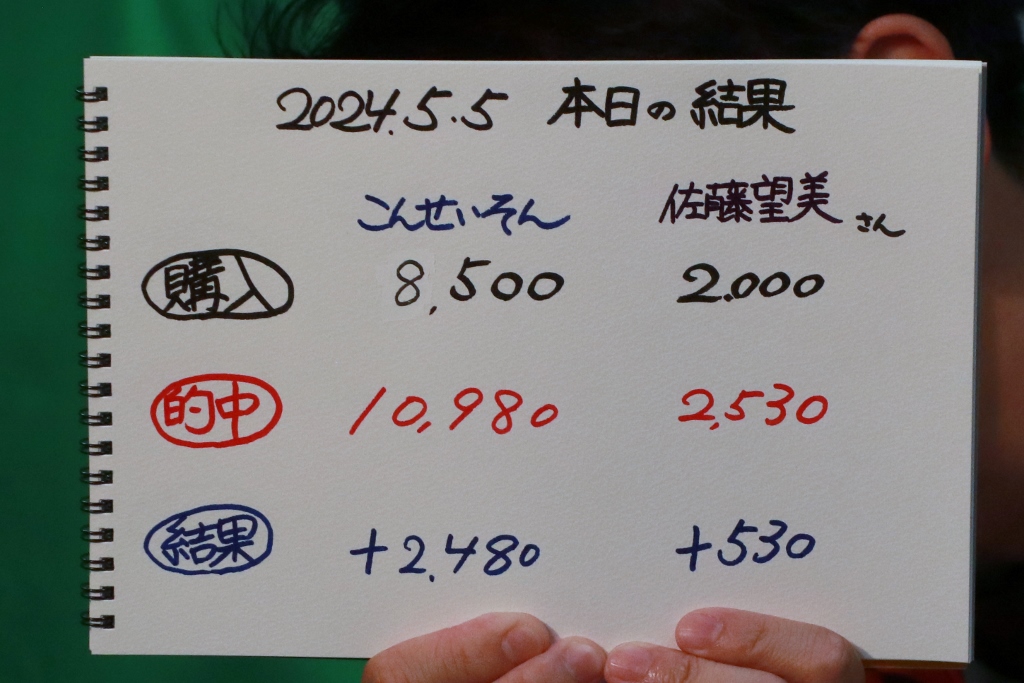 2024.5.5 本日の結果
こんせいそん 佐藤望美さん
購入 8,500 2.000
的中 10,980 2,530
結果 +2.480 +530